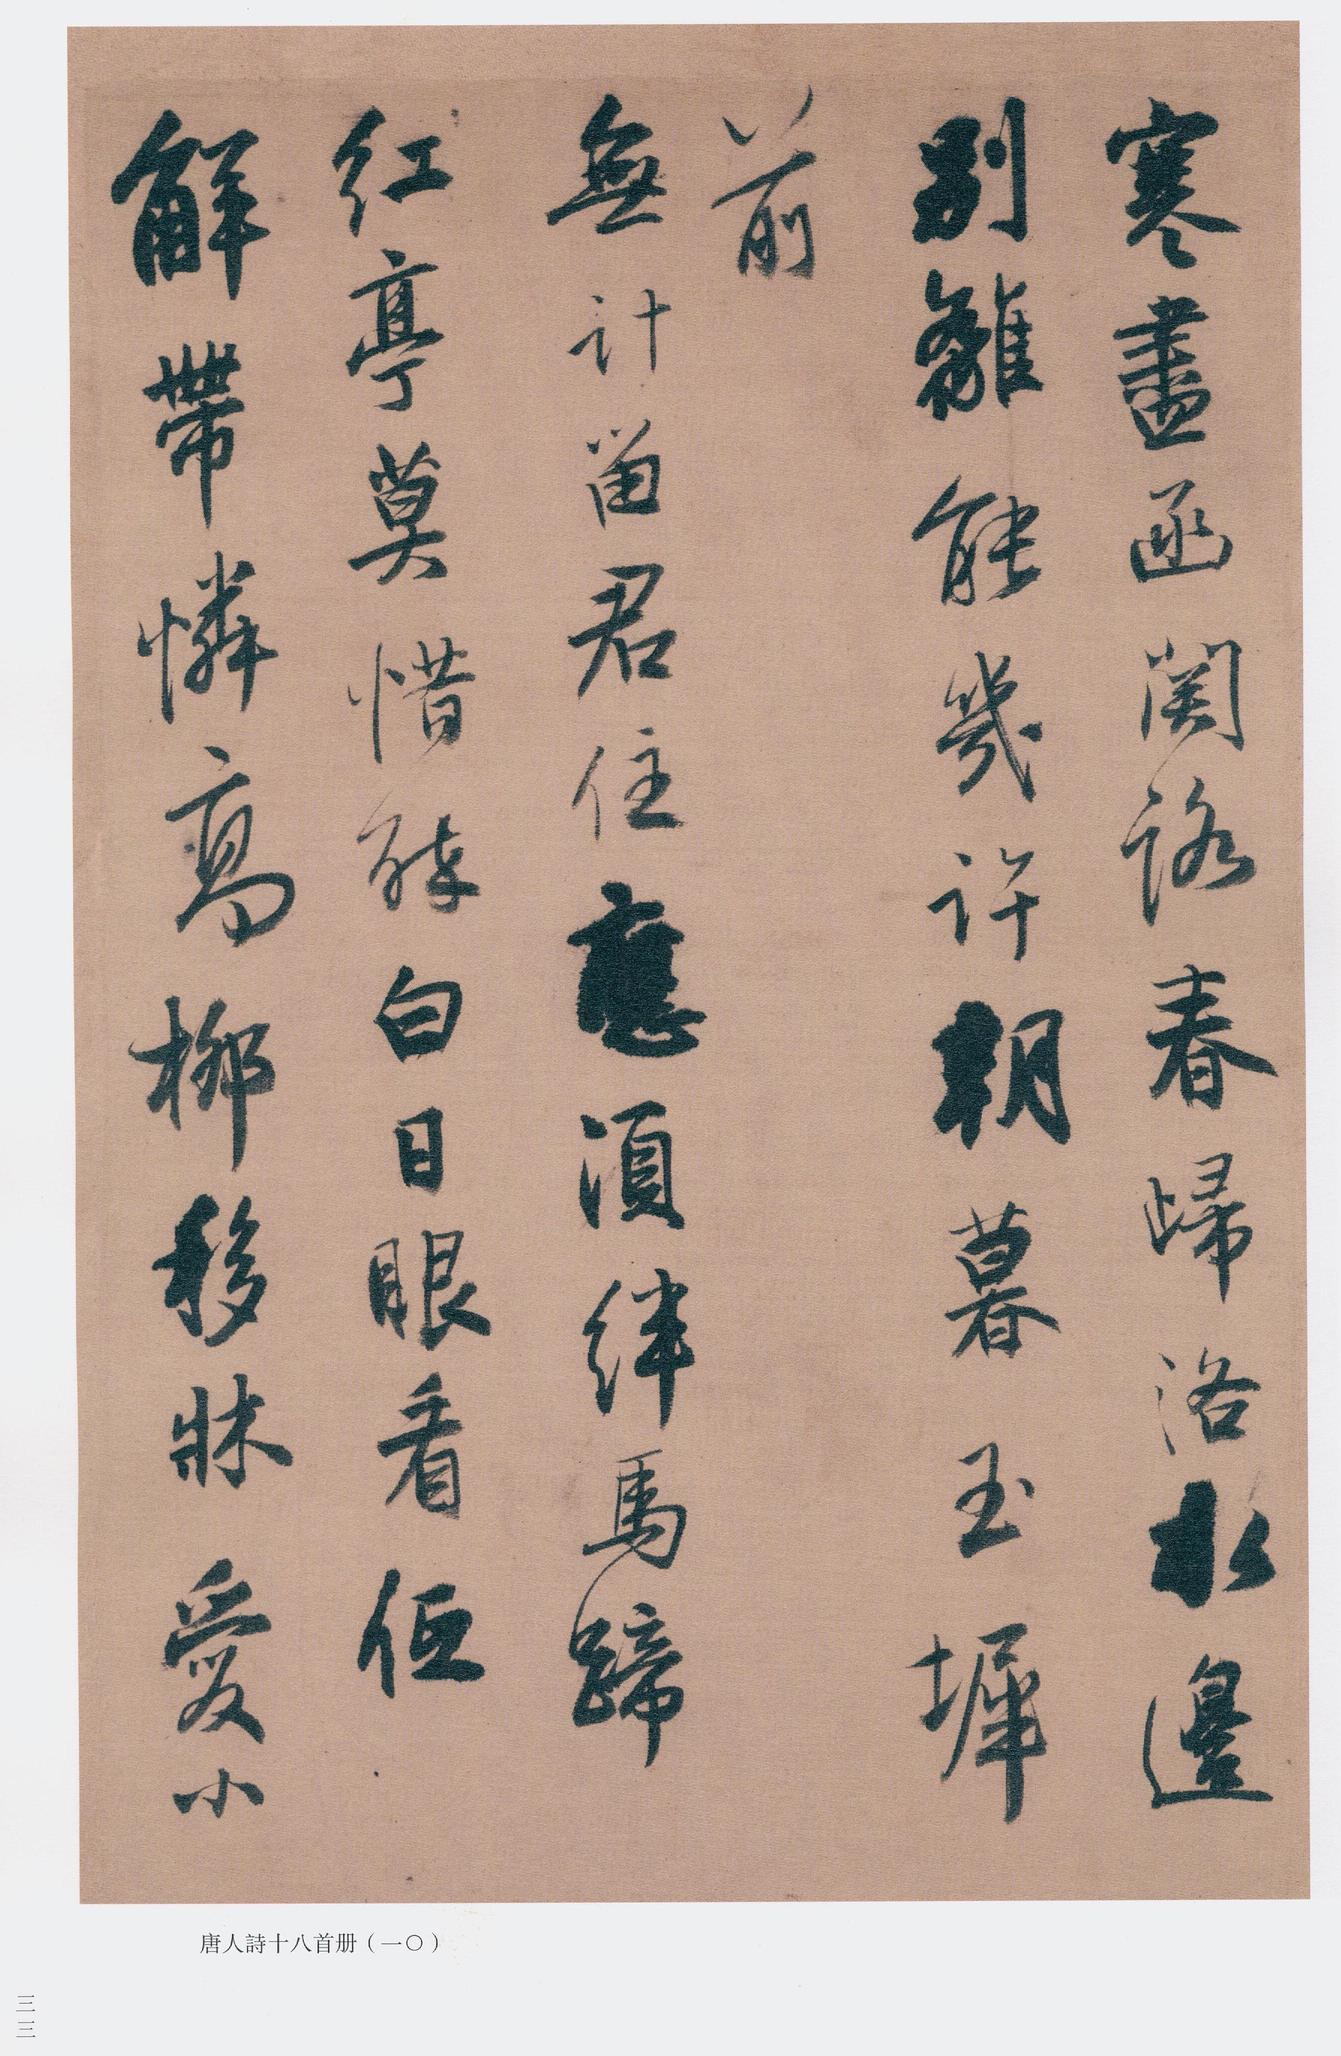 寒盡函関路春歸洛水邊
別離能幾許朝暮玉墀
前
無計留君住應須絆馬蹄
紅亭莫惜醉白日眼看低
解帶憐高柳移牀愛小
唐人詩十八首册（一〇）
三三